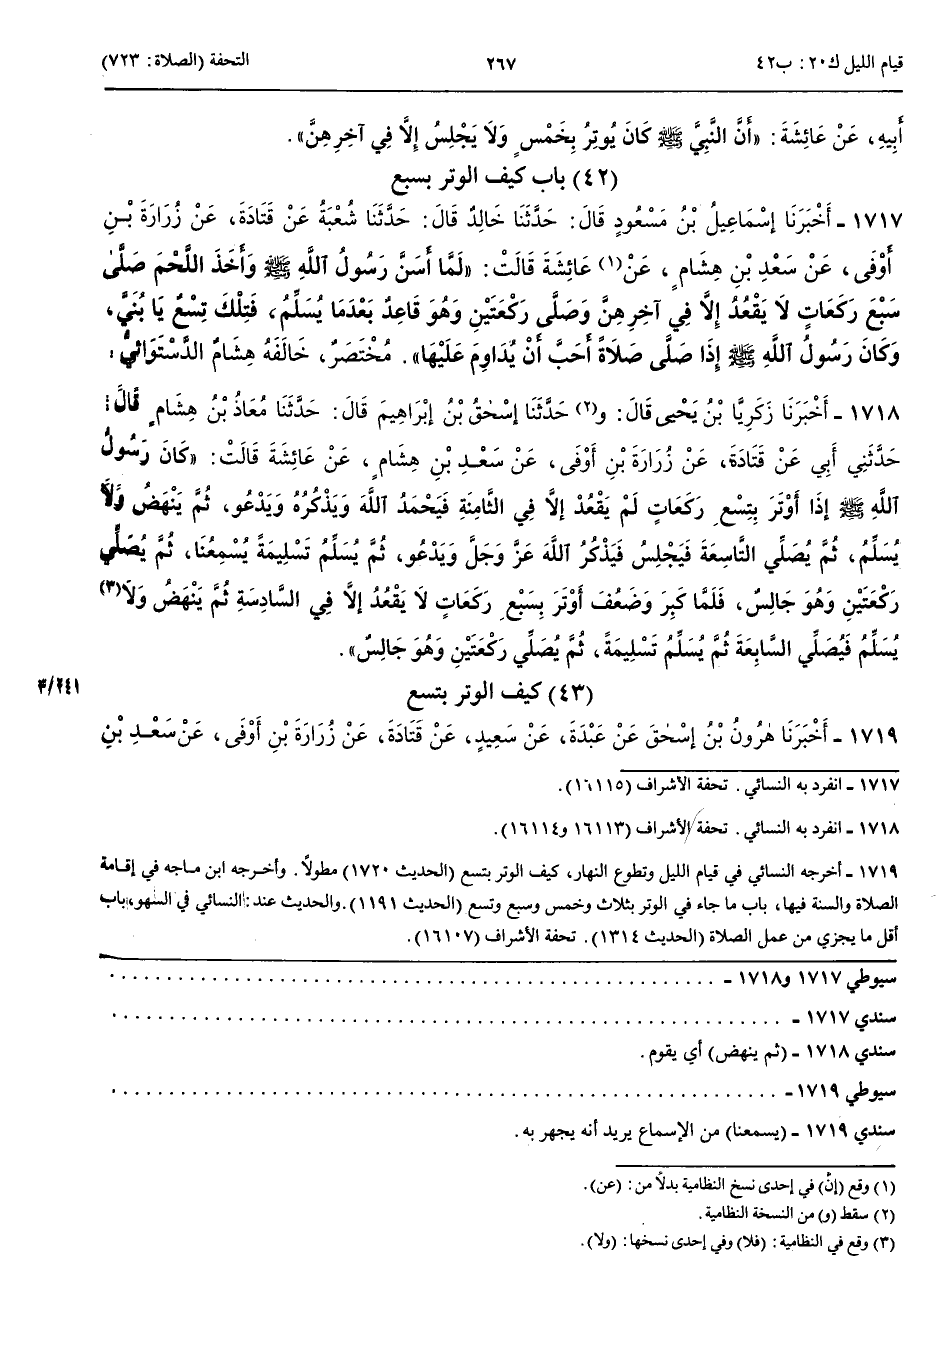 قيام الليل ك٢٠: ب٤٢ ٢٦٧ التحفة (الصلاة: ٧٢٣)
أَبِيهِ، عَنْ عَائِشَةَ: «أَنَّ النَّبِيَّ ﷺ كَانَ يُوتِرُ بِخَمْسٍ وَلَا يَجْلِسُ إِلَّا فِي آخِرِهِنَّ».
(٤٢) باب كيف الوتر بسبع
١٧١٧ ـ أَخْبَرَنَا إِسْمَاعِيلُ بْنُ مَسْعُودٍ قَالَ: حَدَّثَنَا خَالِدٌ قَالَ: حَدَّثَنَا شُعْبَةُ عَنْ قَتَادَةَ، عَنْ زُرَارَةَ بْنِ
أَوْفَى، عَنْ سَعْدِ بْنِ هِشَامٍ، عَنْ(١) عَائِشَةَ قَالَتْ: «لَمَّا أَسَنَّ رَسُولُ اللَّهِ ﷺ وَأَخَذَ اللَّحْمَ صَلَّى
سَبْعَ رَكَعَاتٍ لَا يَقْعُدُ إِلَّا فِي آخِرِهِنَّ وَصَلَّى رَكْعَتَيْنِ وَهُوَ قَاعِدٌ بَعْدَمَا يُسَلِّمُ، فَتِلْكَ تِسْعٌ يَا بُنَيَّ،
وَكَانَ رَسُولُ اللَّهِ ﷺ إِذَا صَلَّى صَلَاةً أَحَبَّ أَنْ يُدَاوِمَ عَلَيْهَا». مُخْتَصَرٌ، خَالَفَهُ هِشَامٌ الدَّسْتَوَائِيُّ:
١٧١٨ ـ أَخْبَرَنَا زَكَرِيَّا بْنُ يَحْيَى قَالَ: وَ(٢) حَدَّثَنَا إِسْحٰقُ بْنُ إِبْرَاهِيمَ قَالَ: حَدَّثَنَا مُعَاذُ بْنُ هِشَامٍ قَالَ:
حَدَّثَنِي أَبِي عَنْ قَتَادَةَ، عَنْ زُرَارَةَ بْنِ أَوْفَى، عَنْ سَعْدِ بْنِ هِشَامٍ، عَنْ عَائِشَةَ قَالَتْ: «كَانَ رَسُولُ
اللَّهِ ﷺ إِذَا أَوْتَرَ بِتِسْعِ رَكَعَاتٍ لَمْ يَقْعُدْ إِلَّا فِي الثَّامِنَةِ فَيَحْمَدُ اللَّهَ وَيَذْكُرُهُ وَيَدْعُو، ثُمَّ يَنْهَضُ وَلَا
يُسَلِّمُ، ثُمَّ يُصَلِّي التَّاسِعَةَ فَيَجْلِسُ فَيَذْكُرُ اللَّهَ عَزَّ وَجَلَّ وَيَدْعُو، ثُمَّ يُسَلِّمُ تَسْلِيمَةً يُسْمِعُنَا، ثُمَّ يُصَلِّي
رَكْعَتَيْنِ وَهُوَ جَالِسٌ، فَلَمَّا كَبِرَ وَضَعُفَ أَوْتَرَ بِسَبْعِ رَكَعَاتٍ لَا يَقْعُدُ إِلَّا فِي السَّادِسَةِ ثُمَّ يَنْهَضُ وَلَا(٣)
يُسَلِّمُ فَيُصَلِّي السَّابِعَةَ ثُمَّ يُسَلِّمُ تَسْلِيمَةً، ثُمَّ يُصَلِّي رَكْعَتَيْنِ وَهُوَ جَالِسٌ».
(٤٣) كيف الوتر بتسع ٣/٢٤١
١٧١٩ ـ أَخْبَرَنَا هٰرُونُ بْنُ إِسْحٰقَ عَنْ عَبْدَةَ، عَنْ سَعِيدٍ، عَنْ قَتَادَةَ، عَنْ زُرَارَةَ بْنِ أَوْفَى، عَنْ سَعْدِ بْنِ
١٧١٧ ـ انفرد به النسائي. تحفة الأشراف (١٦١١٥).
١٧١٨ ـ انفرد به النسائي. تحفة الأشراف (١٦١١٣ و١٦١١٤).
١٧١٩ ـ أخرجه النسائي في قيام الليل وتطوع النهار، كيف الوتر بتسع (الحديث ١٧٢٠) مطولاً. وأخرجه ابن ماجه في إقامة
الصلاة والسنة فيها، باب ما جاء في الوتر بثلاث وخمس وسبع وتسع (الحديث ١١٩١). والحديث عند: النسائي في السهو، باب
أقل ما يجزي من عمل الصلاة (الحديث ١٣١٤). تحفة الأشراف (١٦١٠٧).
سيوطي ١٧١٧ و١٧١٨ ـ . . . . . . . . . . . . . . . . . . . .
سندي ١٧١٧ ـ . . . . . . . . . . . . . . . . . . . .
سندي ١٧١٨ ـ (ثم ينهض) أي يقوم.
سيوطي ١٧١٩ ـ . . . . . . . . . . . . . . . . . . . .
سندي ١٧١٩ ـ (يسمعنا) من الإسماع يريد أنه يجهر به.
(١) وقع (إن) في إحدى نسخ النظامية بدلاً من: (عن).
(٢) سقط (و) من النسخة النظامية.
(٣) وقع في النظامية: (فلا) وفي إحدى نسخها: (ولا).